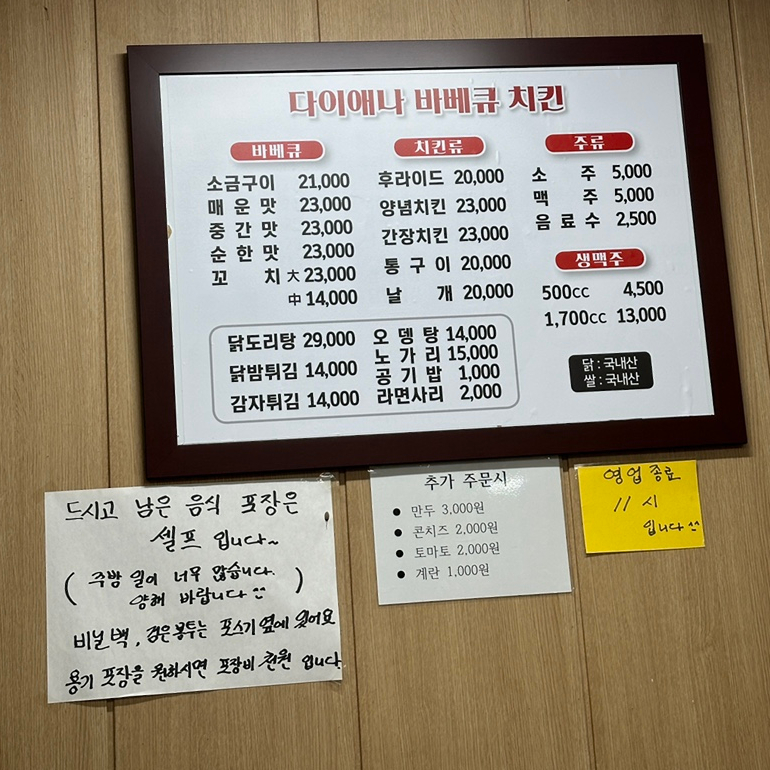 다이애나 바베큐 치킨
바베큐
소금구이 21,000
매운맛 23,000
중간맛 23,000
순한맛 23,000
꼬치 大 23,000
中 14,000
치킨류
후라이드 20,000
양념치킨 23,000
간장치킨 23,000
통구이 20,000
날개 20,000
주류
소주 5,000
맥주 5,000
음료수 2,500
생맥주
500cc 4,500
1,700cc 13,000
닭도리탕 29,000
닭밤튀김 14,000
감자튀김 14,000
오뎅탕 14,000
노가리 15,000
공기밥 1,000
라면사리 2,000
닭 : 국내산
쌀 : 국내산
드시고 남은 음식 포장은
셀프 입니다~
( 주방 일이 너무 많습니다.
양해 바랍니다 ^^ )
비닐백, 검은봉투는 포스기 옆에 있어요
용기 포장을 원하시면 포장비 천원 입니다
추가 주문시
● 만두 3,000원
● 콘치즈 2,000원
● 토마토 2,000원
● 계란 1,000원
영업종료
11 시
입니다 ^^